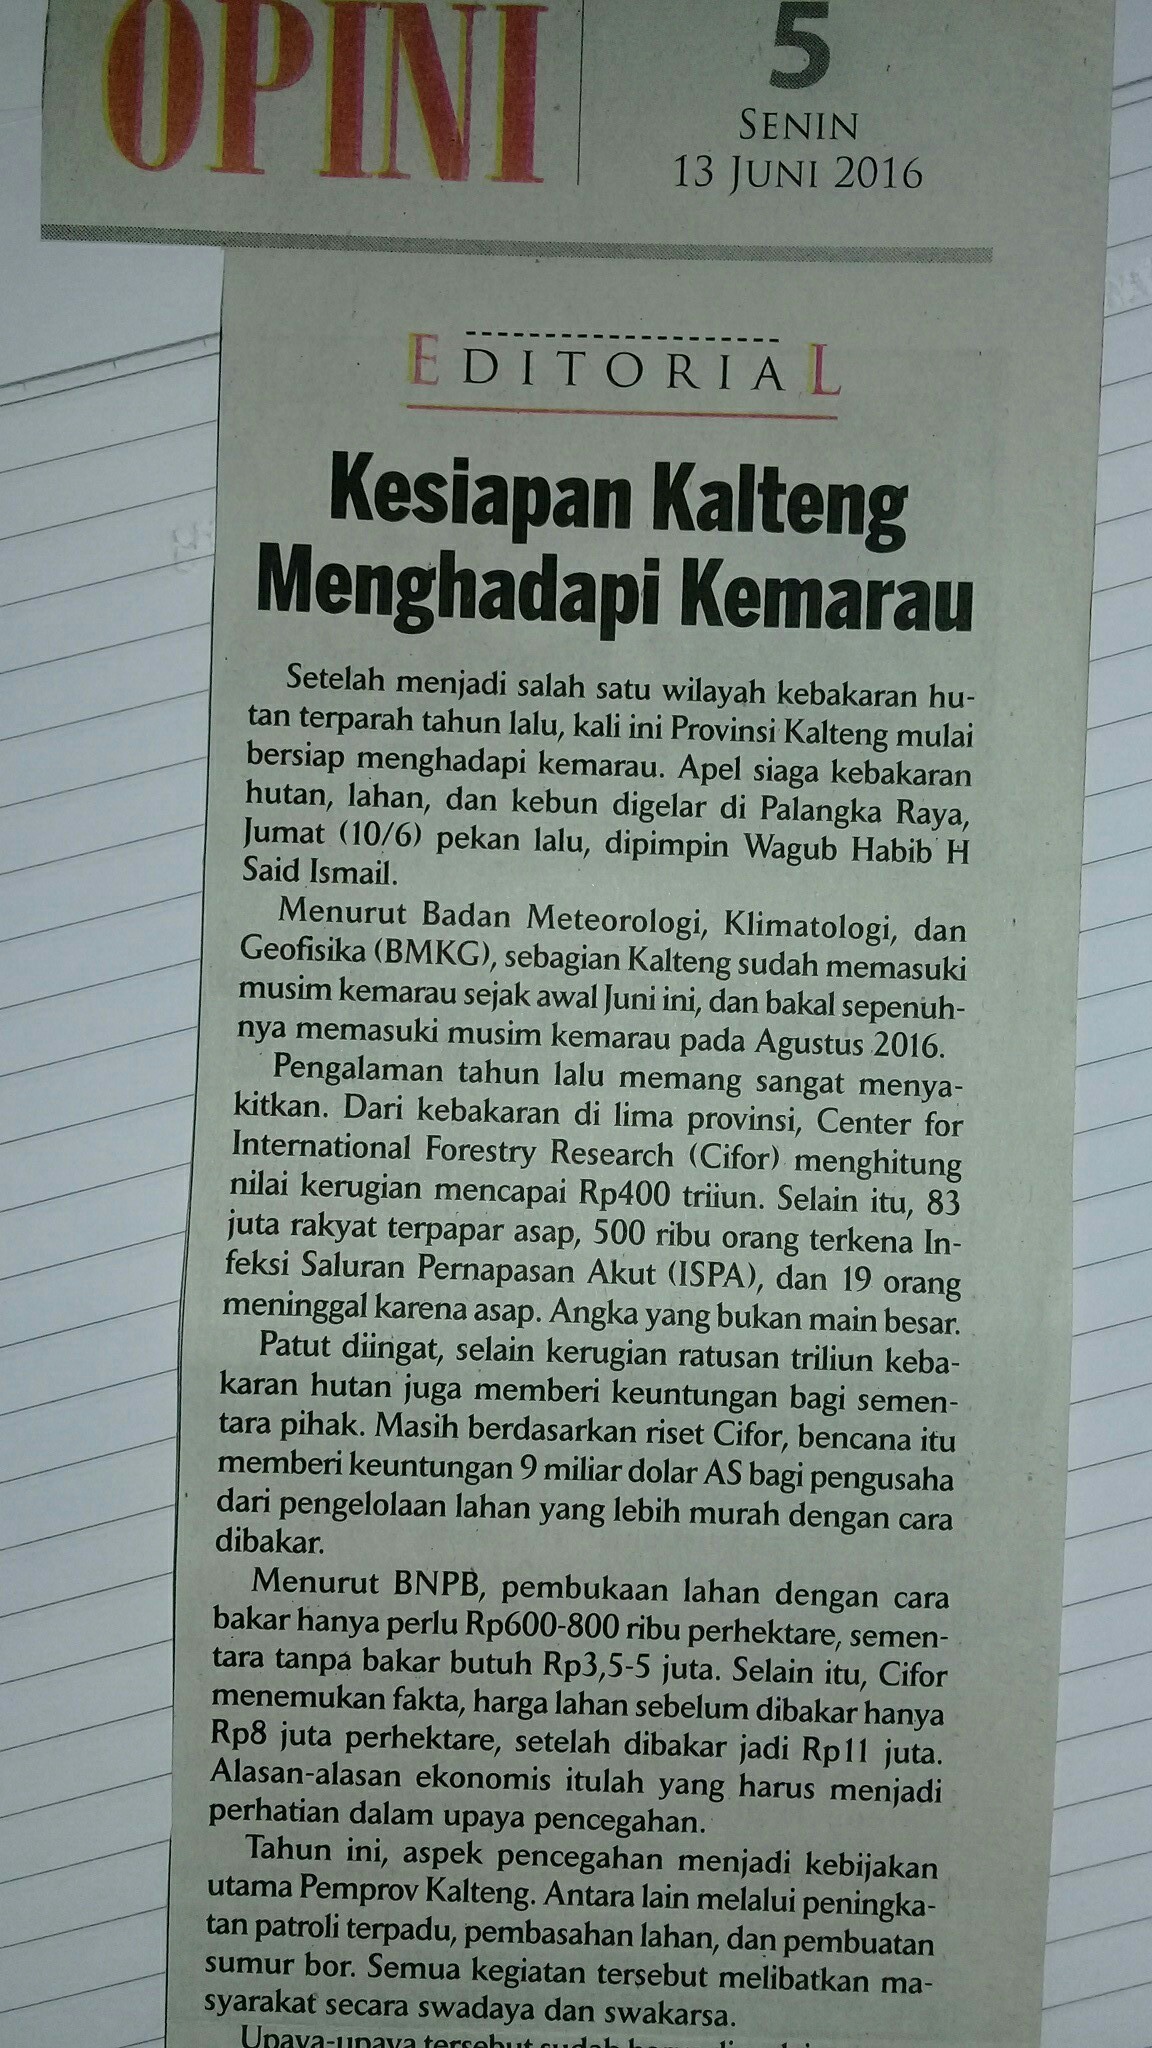 OPINI
5
SENIN
13 JUNI 2016
EDITORIAL
Kesiapan Kalteng
Menghadapi Kemarau
Setelah menjadi salah satu wilayah kebakaran hu-
tan terparah tahun lalu, kali ini Provinsi Kalteng mulai
bersiap menghadapi kemarau. Apel siaga kebakaran
hutan, lahan, dan kebun digelar di Palangka Raya,
Jumat (10/6) pekan lalu, dipimpin Wagub Habib H
Said Ismail.
Menurut Badan Meteorologi, Klimatologi, dan
Geofisika (BMKG), sebagian Kalteng sudah memasuki
musim kemarau sejak awal Juni ini, dan bakal sepenuh-
nya memasuki musim kemarau pada Agustus 2016.
Pengalaman tahun lalu memang sangat menya-
kitkan. Dari kebakaran di lima provinsi, Center for
International Forestry Research (Cifor) menghitung
nilai kerugian mencapai Rp400 triiun. Selain itu, 83
juta rakyat terpapar asap, 500 ribu orang terkena In-
feksi Saluran Pernapasan Akut (ISPA), dan 19 orang
meninggal karena asap. Angka yang bukan main besar.
Patut diingat, selain kerugian ratusan triliun keba-
karan hutan juga memberi keuntungan bagi semen-
tara pihak. Masih berdasarkan riset Cifor, bencana itu
memberi keuntungan 9 miliar dolar AS bagi pengusaha
dari pengelolaan lahan yang lebih murah dengan cara
dibakar.
Menurut BNPB, pembukaan lahan dengan cara
bakar hanya perlu Rp600-800 ribu perhektare, semen-
tara tanpa bakar butuh Rp3,5-5 juta. Selain itu, Cifor
menemukan fakta, harga lahan sebelum dibakar hanya
Rp8 juta perhektare, setelah dibakar jadi Rp11 juta.
Alasan-alasan ekonomis itulah yang harus menjadi
perhatian dalam upaya pencegahan.
Tahun ini, aspek pencegahan menjadi kebijakan
utama Pemprov Kalteng. Antara lain melalui peningka-
tan patroli terpadu, pembasahan lahan, dan pembuatan
sumur bor. Semua kegiatan tersebut melibatkan ma-
syarakat secara swadaya dan swakarsa.
Upaya-upaya tersebut sudah